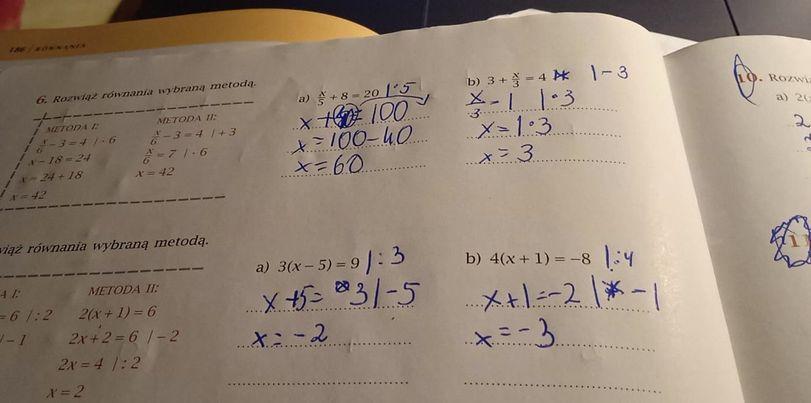 186 / RÓWNANIA
6. Rozwiąż równania wybraną metodą.
METODA I:
x/6 − 3 = 4 / · 6
x − 18 = 24
x = 24 + 18
x = 42
METODA II:
x/6 − 3 = 4 / + 3
x/6 = 7 / · 6
x = 42
a) x/5 + 8 = 20 | · 5
x + 40 = 100
x = 100 − 40
x = 60
b) 3 + x/3 = 4 | − 3
x/3 − 1 | · 3
x = 1 · 3
x = 3
wiąż równania wybraną metodą.
A I:
= 6 / : 2
/ − 1
METODA II:
2(x + 1) = 6
2x + 2 = 6 / − 2
2x = 4 / : 2
x = 2
a) 3(x − 5) = 9 | : 3
x + 5 = 3 | − 5
x = − 2
b) 4(x + 1) = −8 | : 4
x + 1 = −2 | − 1
x = − 3
10. Rozwi
a) 2(
2
11